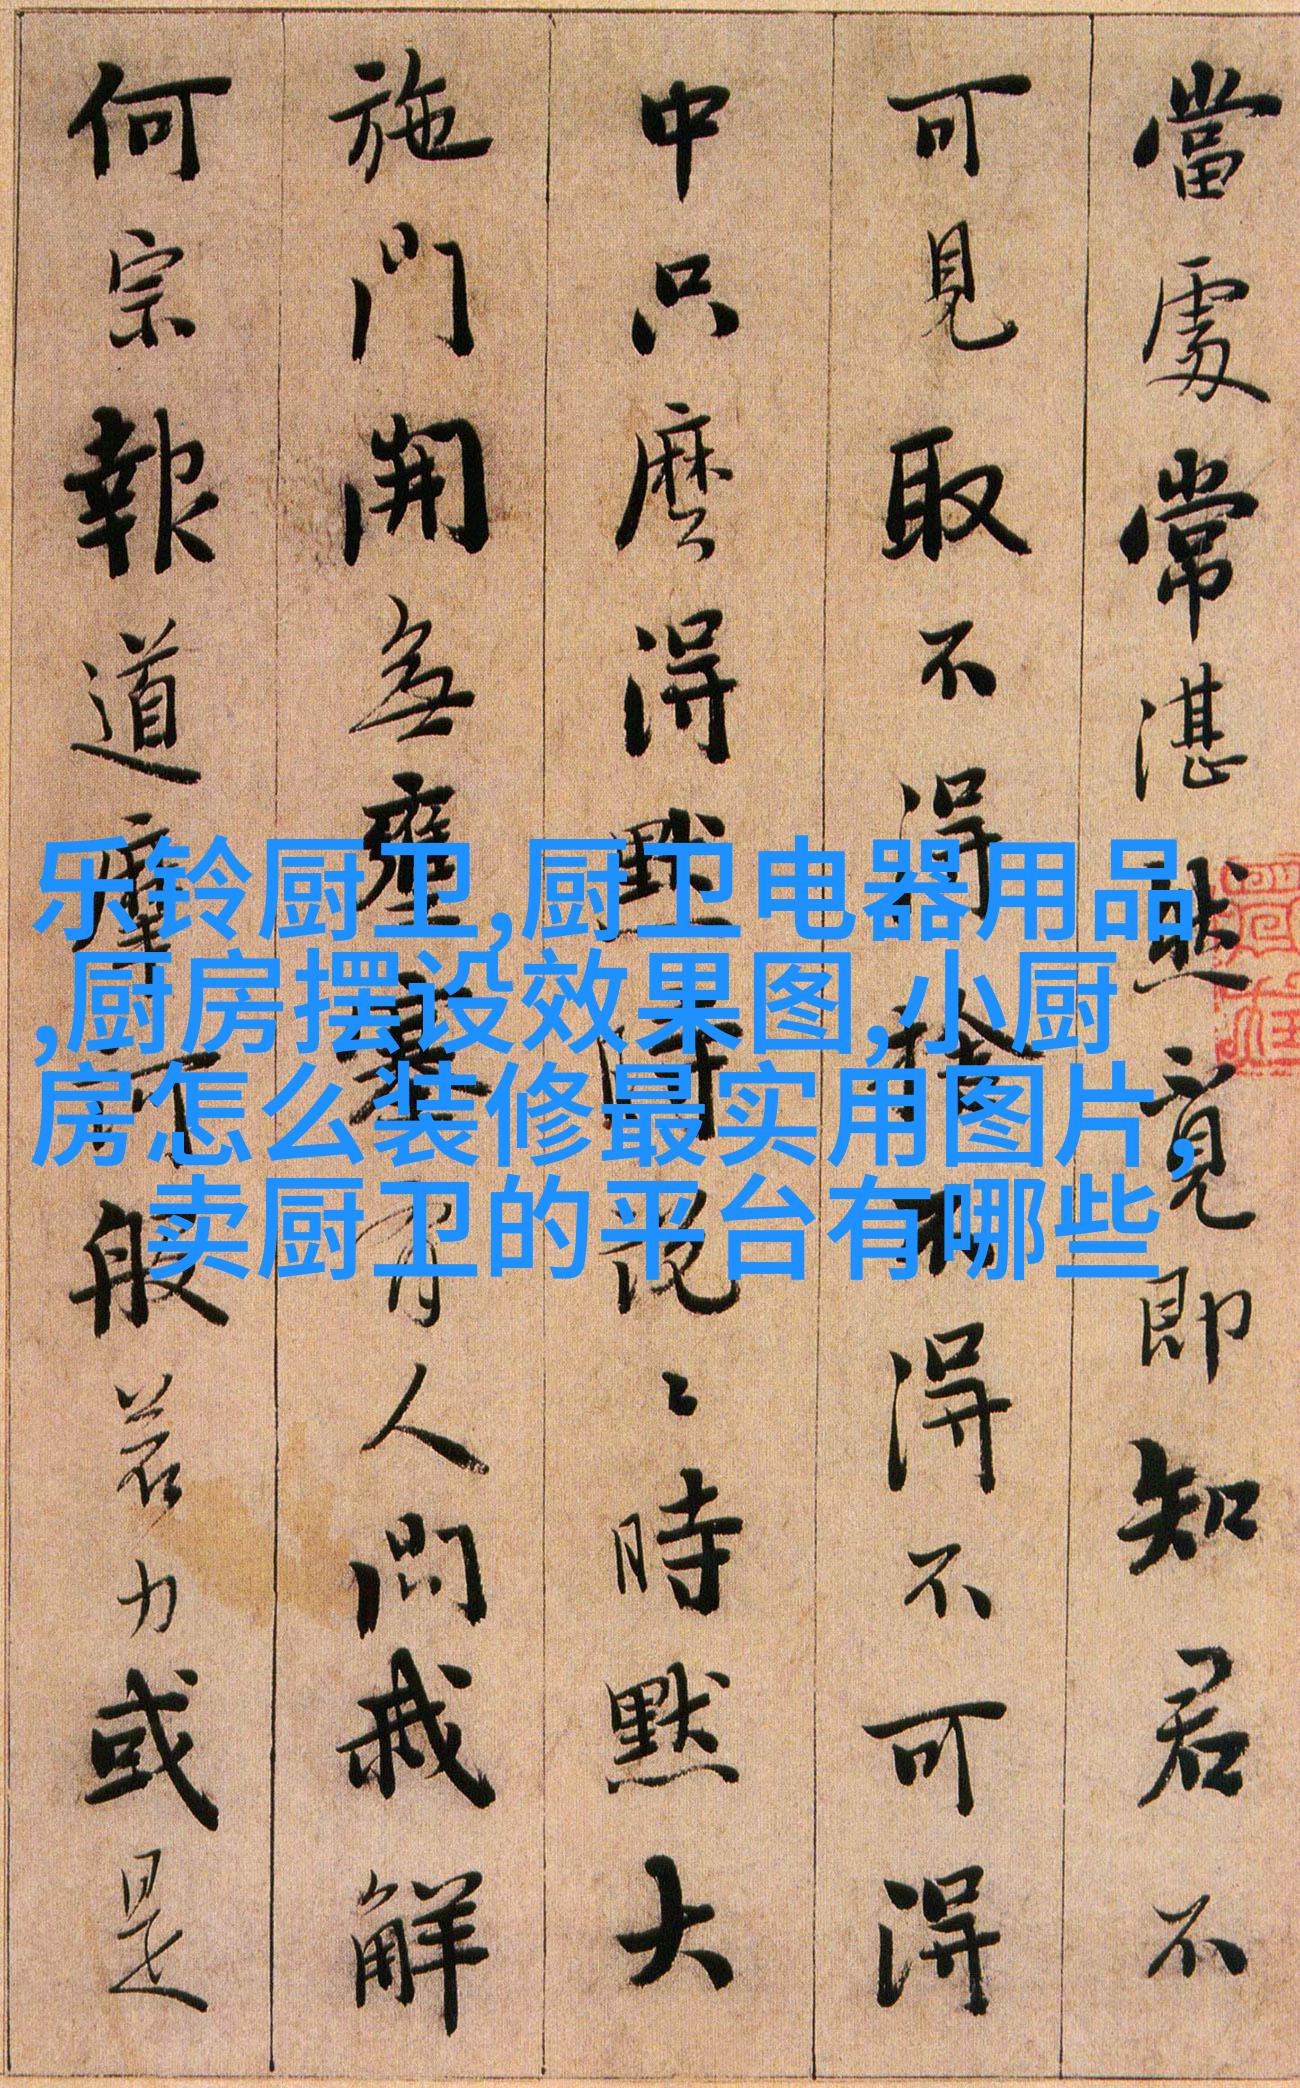 當處常湛然覓即知君不
可見取不得捨不得不可得
中只麼得默時說〻時默大
施門開無壅塞有人問我解
何宗報道摩訶般若力或是
乐铃厨卫,厨卫电器用品
,厨房摆设效果图,小厨
房怎么装修最实用图片,
卖厨卫的平台有哪些